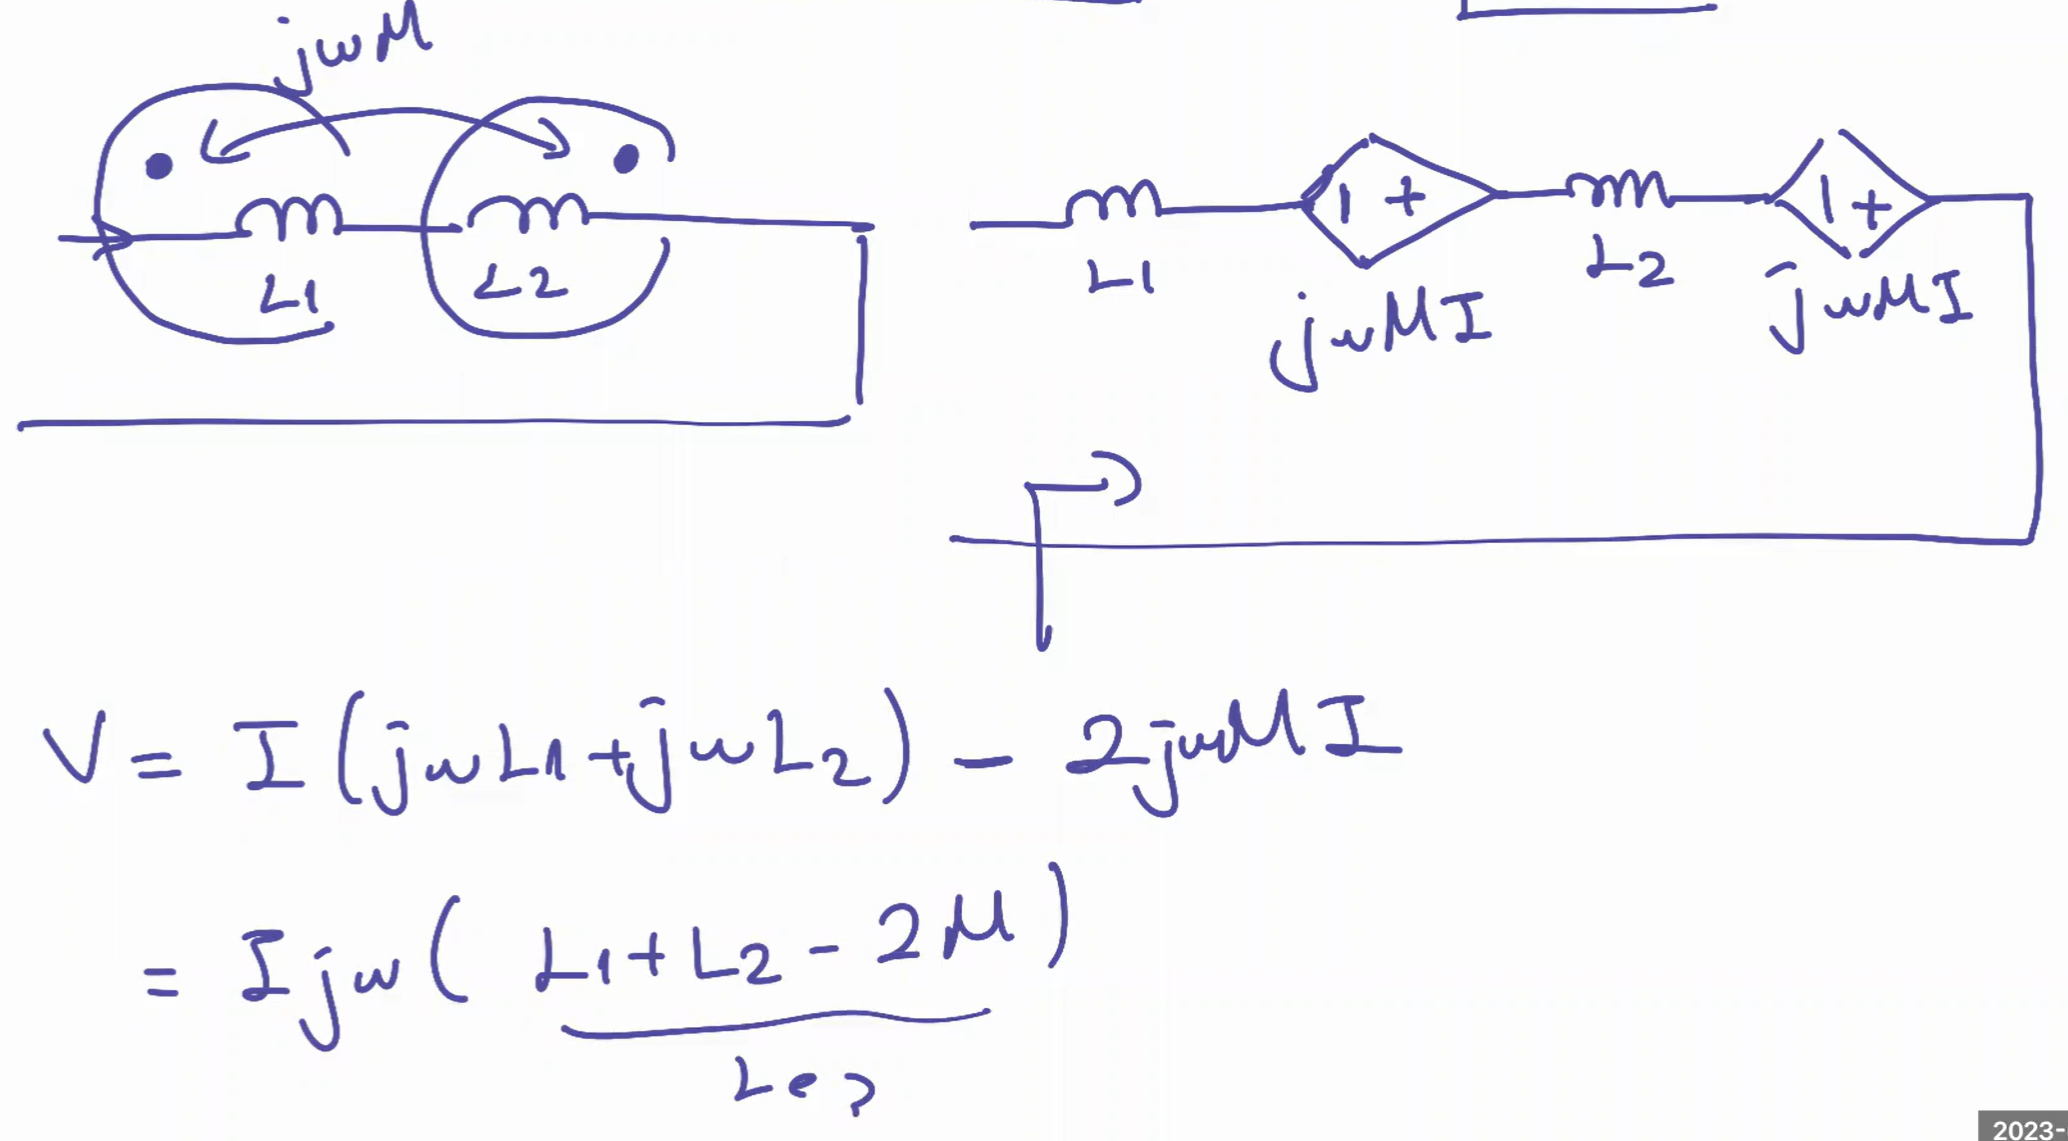 jωM
L1
L2
| +
| +
L1
jωMI
L2
jωMI
V = I (jωL1 + jωL2) - 2jωMI
= I jω ( L1 + L2 - 2M )
Leq
2023-